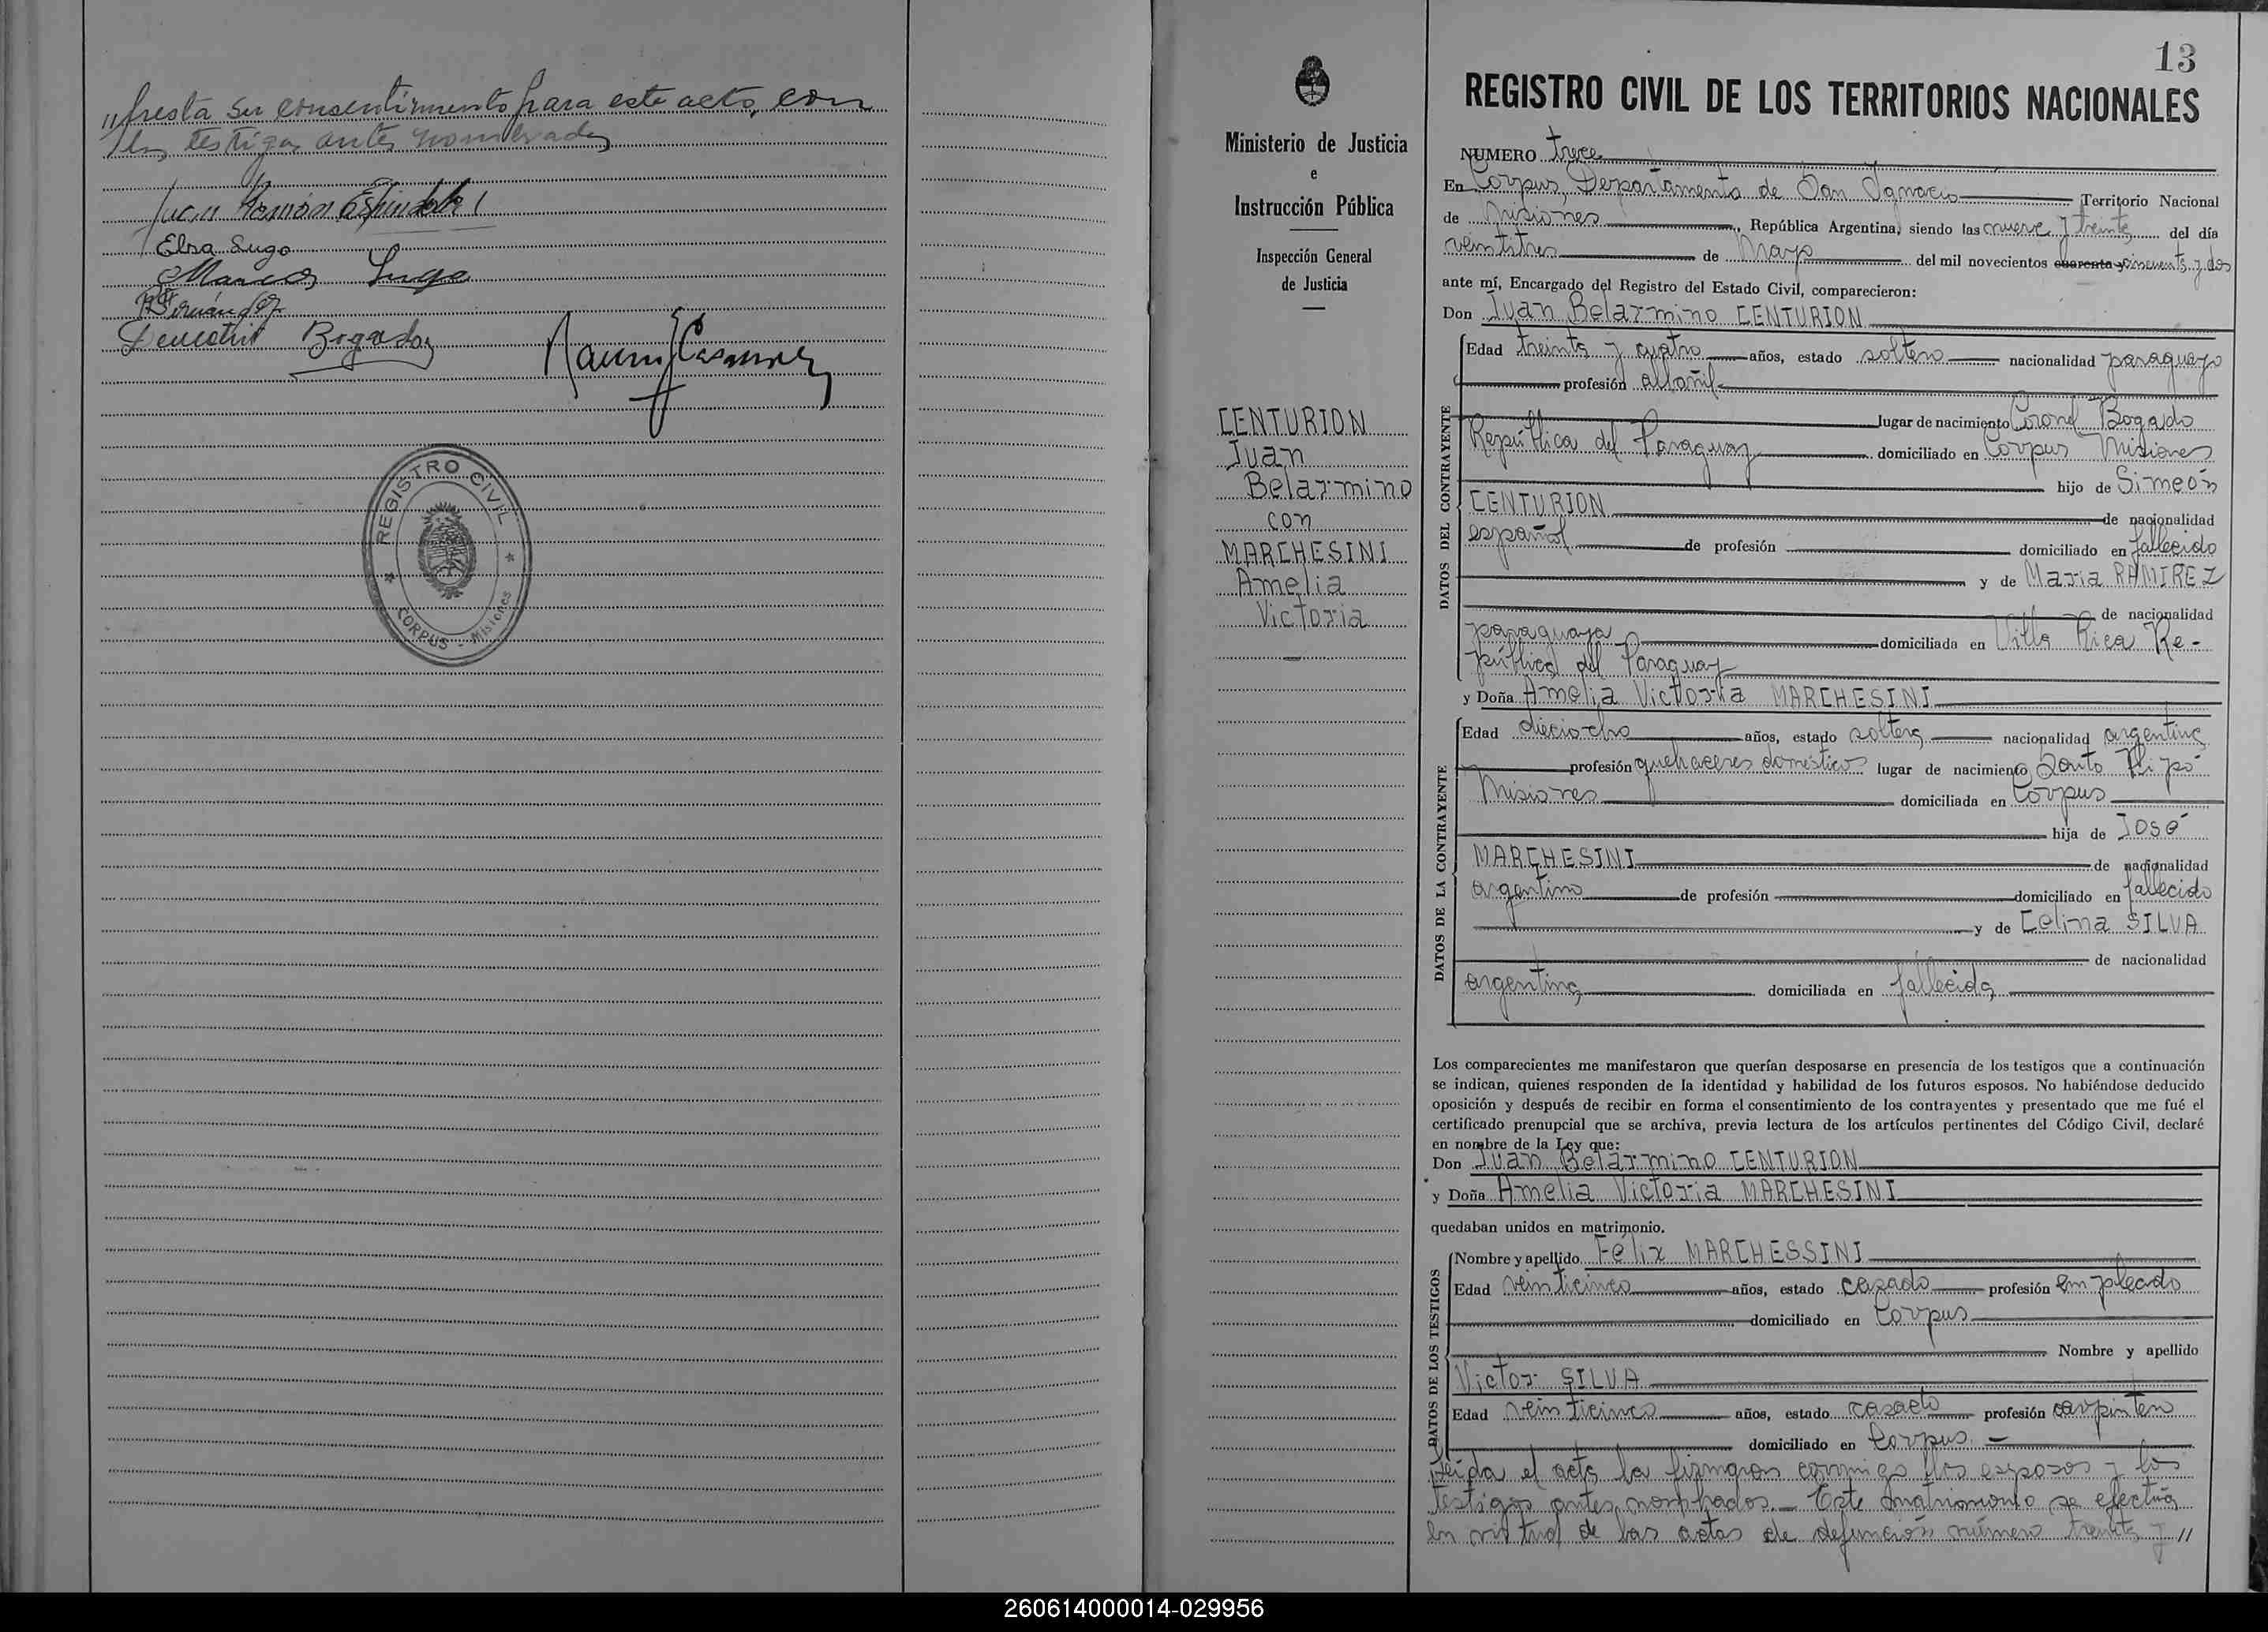 "presta su consentimiento para este acto, con
los testigos antes nombrados
Juan Ramón Espindola
Elsa Lugo
Marcos Lugo
Fernández
Demetrio Bogado
REGISTRO CIVIL
CORPUS - Misiones
Ministerio de Justicia
e
Instrucción Pública
Inspección General
de Justicia
CENTURION
Juan
Belarmino
con
MARCHESINI
Amelia
Victoria
13
REGISTRO CIVIL DE LOS TERRITORIOS NACIONALES
NUMERO trece
En Corpus, Departamento de San Ignacio Territorio Nacional
de Misiones, República Argentina, siendo las nueve y treinta del día
veintitres de Mayo del mil novecientos cuarenta y cincuenta y dos
ante mí, Encargado del Registro del Estado Civil, comparecieron:
Don Juan Belarmino CENTURION
DATOS DEL CONTRAYENTE
Edad treinta y cuatro años, estado soltero nacionalidad paraguayo
profesión albañil
lugar de nacimiento Coronel Bogado
República del Paraguay domiciliado en Corpus Misiones
hijo de Simeón
CENTURION de nacionalidad
español de profesión domiciliado en fallecido
y de Maria RAMIREZ
de nacionalidad
paraguaya domiciliada en Villa Rica Re-
pública del Paraguay
y Doña Amelia Victoria MARCHESINI
DATOS DE LA CONTRAYENTE
Edad dieciocho años, estado soltera nacionalidad argentina
profesión quehaceres domésticos lugar de nacimiento Santo Pipó
Misiones domiciliada en Corpus
hija de José
MARCHESINI de nacionalidad
argentino de profesión domiciliado en fallecido
y de Celina SILVA
de nacionalidad
argentina domiciliada en fallecida
Los comparecientes me manifestaron que querían desposarse en presencia de los testigos que a continuación
se indican, quienes responden de la identidad y habilidad de los futuros esposos. No habiéndose deducido
oposición y después de recibir en forma el consentimiento de los contrayentes y presentado que me fué el
certificado prenupcial que se archiva, previa lectura de los artículos pertinentes del Código Civil, declaré
en nombre de la Ley que:
Don Juan Belarmino CENTURION
y Doña Amelia Victoria MARCHESINI
quedaban unidos en matrimonio.
DATOS DE LOS TESTIGOS
Nombre y apellido Félix MARCHESSINI
Edad veinticinco años, estado casado profesión empleado
domiciliado en Corpus
Nombre y apellido
Victor SILVA
Edad veinticinco años, estado casado profesión carpintero
domiciliado en Corpus
Leída el acta la firmaron conmigo los esposos y los
testigos antes nombrados.- Este matrimonio se efectúa
en virtud de las actas de defunción número treinta y //
260614000014-029956